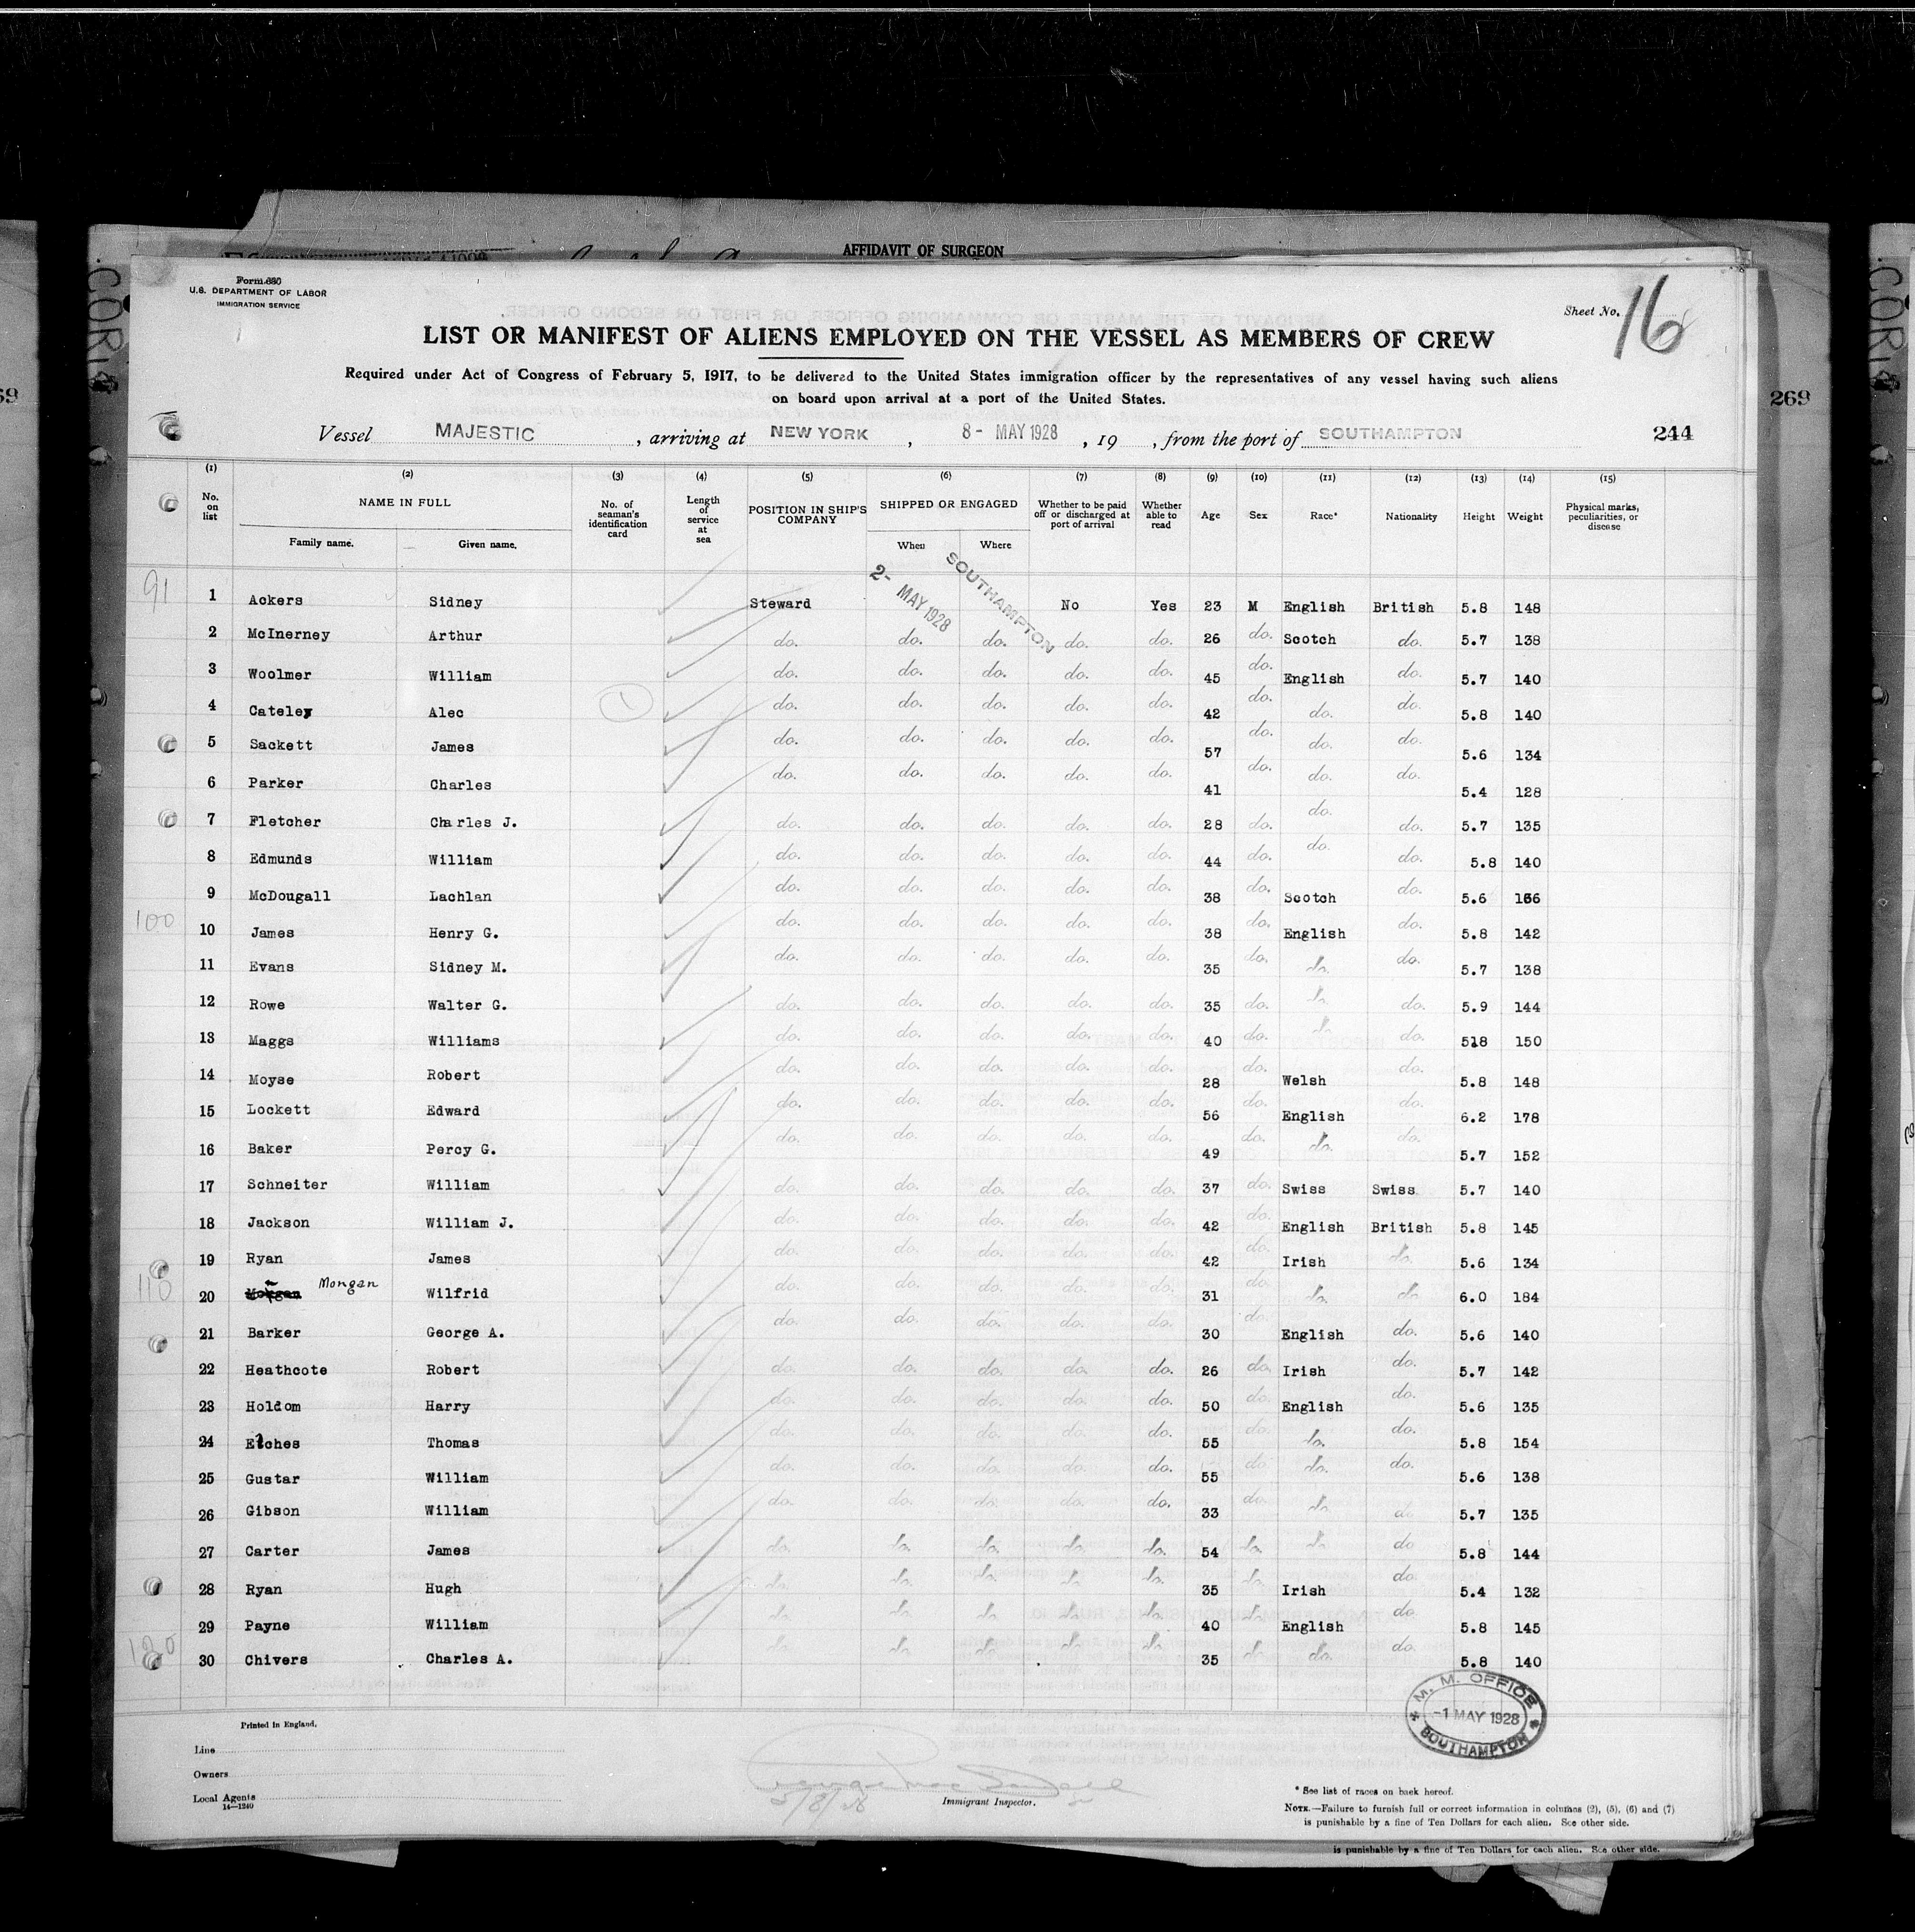 AFFIDAVIT OF SURGEON
Form 680
U.S. DEPARTMENT OF LABOR
IMMIGRATION SERVICE
Sheet No. 16
LIST OR MANIFEST OF ALIENS EMPLOYED ON THE VESSEL AS MEMBERS OF CREW
Required under Act of Congress of February 5, 1917, to be delivered to the United States immigration officer by the representatives of any vessel having such aliens
on board upon arrival at a port of the United States.
269
Vessel MAJESTIC , arriving at NEW YORK , 8- MAY 1928 , 19 , from the port of SOUTHAMPTON 244
(1) (2) (3) (4) (5) (6) (7) (8) (9) (10) (11) (12) (13) (14) (15)
No. on list NAME IN FULL No. of seaman's identification card Length of service at sea POSITION IN SHIP'S COMPANY SHIPPED OR ENGAGED Whether to be paid off or discharged at port of arrival Whether able to read Age Sex Race* Nationality Height Weight Physical marks, peculiarities, or disease
Family name. Given name. When Where
91
2- MAY 1928 SOUTHAMPTON
1 Ackers Sidney Steward No Yes 23 M English British 5.8 148
2 McInerney Arthur do. do. do. do. do. 26 do. Scotch do. 5.7 138
3 Woolmer William do. do. do. do. do. 45 do. English do. 5.7 140
4 Cateley Alec 1 do. do. do. do. do. 42 do. do. do. 5.8 140
5 Sackett James do. do. do. do. do. 57 do. do. do. 5.6 134
6 Parker Charles do. do. do. do. do. 41 do. do. do. 5.4 128
7 Fletcher Charles J. do. do. do. do. do. 28 do. do. do. 5.7 135
8 Edmunds William do. do. do. do. do. 44 do. do. do. 5.8 140
9 McDougall Lachlan do. do. do. do. do. 38 do. Scotch do. 5.6 166
100
10 James Henry G. do. do. do. do. do. 38 do. English do. 5.8 142
11 Evans Sidney M. do. do. do. do. do. 35 do. do. do. 5.7 138
12 Rowe Walter G. do. do. do. do. do. 35 do. do. do. 5.9 144
13 Maggs Williams do. do. do. do. do. 40 do. do. do. 518 150
14 Moyse Robert do. do. do. do. do. 28 do. Welsh do. 5.8 148
15 Lockett Edward do. do. do. do. do. 56 do. English do. 6.2 178
16 Baker Percy G. do. do. do. do. do. 49 do. do. do. 5.7 152
17 Schneiter William do. do. do. do. do. 37 do. Swiss Swiss 5.7 140
18 Jackson William J. do. do. do. do. do. 42 do. English British 5.8 145
19 Ryan James do. do. do. do. do. 42 do. Irish do. 5.6 134
110
20 Morgan Mongan Wilfrid do. do. do. do. do. 31 do. do. do. 6.0 184
21 Barker George A. do. do. do. do. do. 30 do. English do. 5.6 140
22 Heathcote Robert do. do. do. do. do. 26 do. Irish do. 5.7 142
23 Holdom Harry do. do. do. do. do. 50 do. English do. 5.6 135
24 Etches Thomas do. do. do. do. do. 55 do. do. do. 5.8 154
25 Gustar William do. do. do. do. do. 55 do. do. do. 5.6 138
26 Gibson William do. do. do. do. do. 33 do. do. do 5.7 135
27 Carter James do. do. do. do. do. 54 do. do. do 5.8 144
28 Ryan Hugh do. do. do. do. do. 35 do. Irish do 5.4 132
29 Payne William do. do. do. do. do. 40 do. English do 5.8 145
120
30 Chivers Charles A. do. do. do. do. do. 35 do. do. do. 5.8 140
M. M. OFFICE
-1 MAY 1928
SOUTHAMPTON
Printed in England.
Line
Owners
Local Agents
14—1240
5/8/28
Immigrant Inspector.
* See list of races on back hereof.
NOTE.—Failure to furnish full or correct information in columns (2), (5), (6) and (7)
is punishable by a fine of Ten Dollars for each alien. See other side.
is punishable by a fine of Ten Dollars for each alien. See other side.